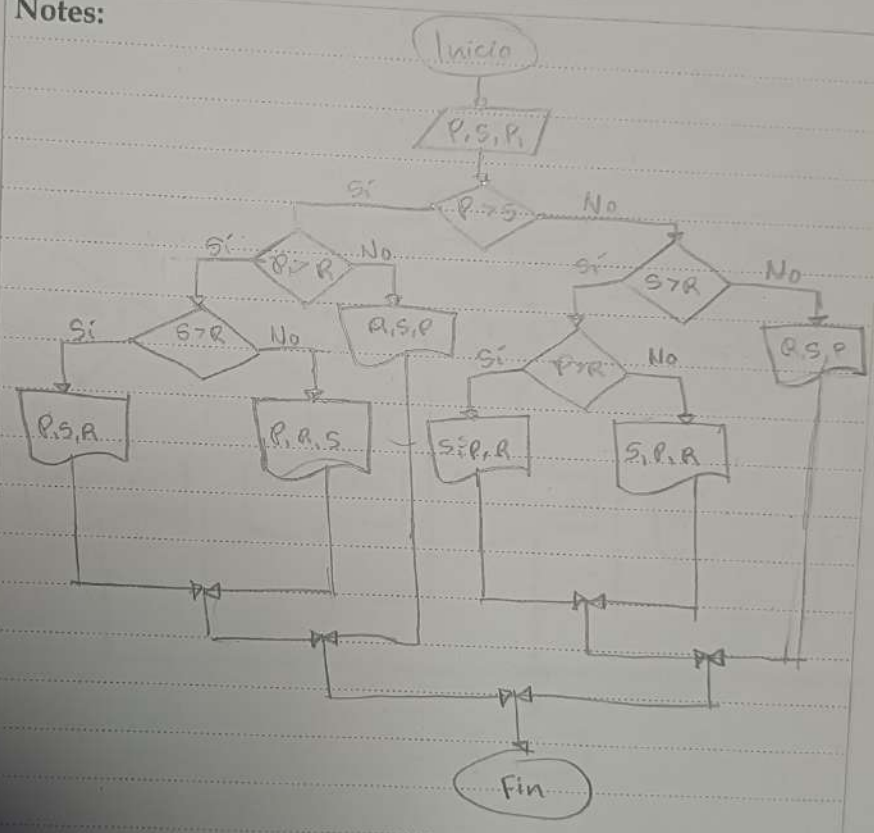 Notes:
Inicio
P, S, P,
Sí P > S No
Sí P > R No Sí S > R No
Sí S > R No R, S, P Sí P > R No R, S, P
P, S, R P, R, S S, P, R S, P, R
Fin